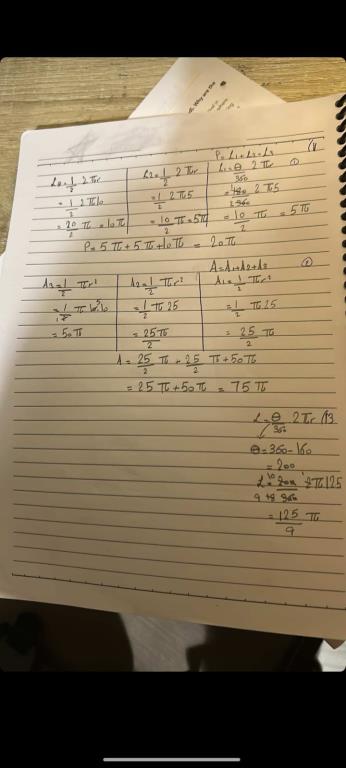 Why are the
P = L₁ + L₂ + L₃ (4
L₃ = 1/2 2πr
L₂ = 1/2 2πr
L₁ = θ/360 2πr ①
= 1/2 2π10
= 1/2 2π5
= 180/360 2π5
= 20/2 π = 10π
= 10/2 π = 5π
= 10/2 π = 5π
P = 5π + 5π + 10π = 20π
A = A₁ + A₂ + A₃ ②
A₃ = 1/2 πr²
A₂ = 1/2 πr²
A₁ = 1/2 πr²
= 1/2 π 10·10
= 1/2 π 25
= 1/2 π 25
= 50π
= 25π/2
= 25/2 π
A = 25/2 π + 25/2 π + 50π
= 25π + 50π = 75π
L = θ/360 2πr (13
θ = 360 - 160
= 200
= 125/9 π